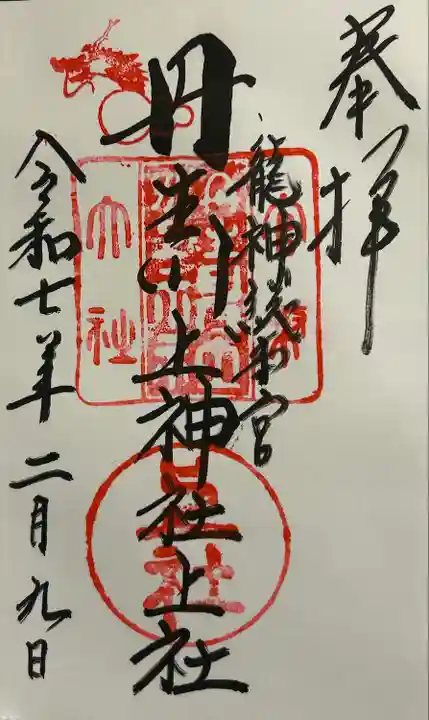 奉拝
龍神総本宮
丹生川上神社上社
令和七年二月九日
大社
上社